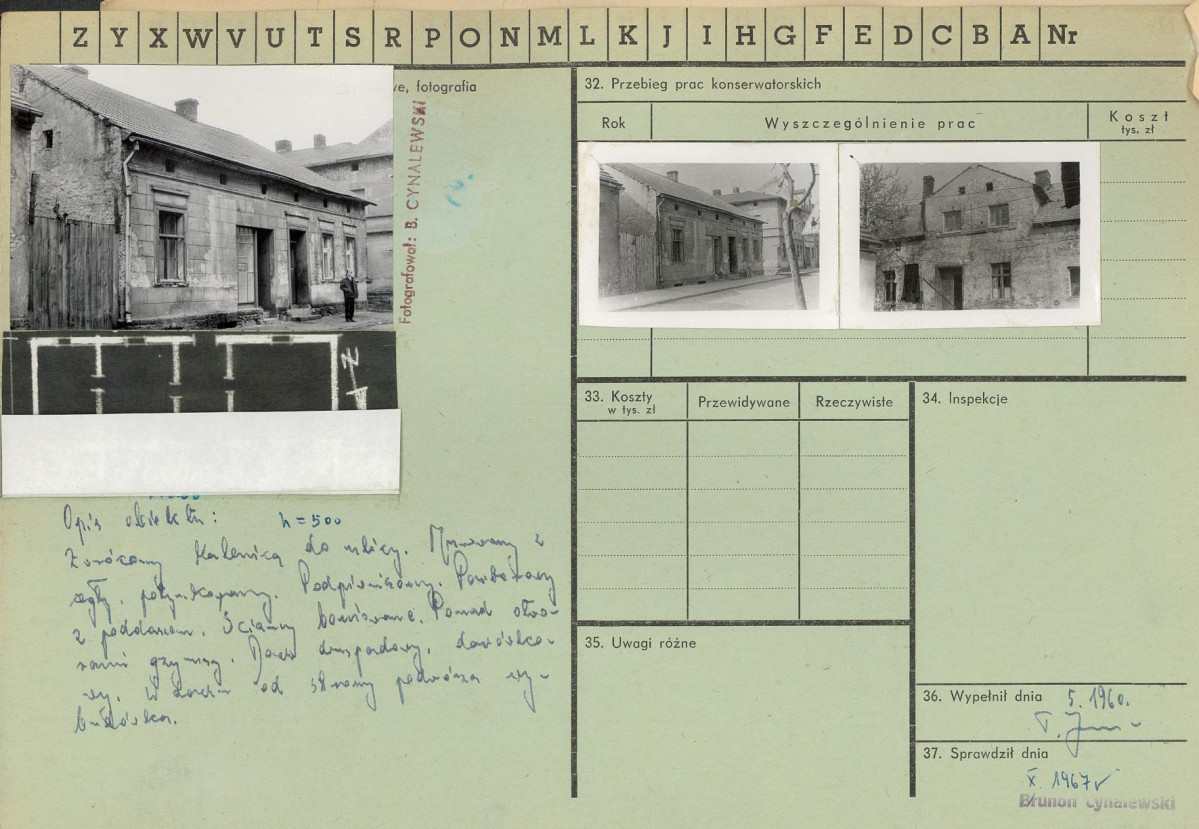 Z Y X W V U T S R P O N M L K J I H G F E D C B A Nr
we, fotografia
Fotografował: B. CYNALEWSKI
N
Opis obiektu: h = 500
Zwrócony kalenicą do ulicy. Murowany z
cegły, potynkowany. Podpiwniczony. Parterowy
z poddaszem. Ściany boniowane. Ponad otwo-
rami gzymsy. Dach dwuspadowy, dachówko-
wy. W dachu od strony podwórza wy-
budówka.
32. Przebieg prac konserwatorskich
Rok
Wyszczególnienie prac
Koszt
tys. zł
33. Koszty
w tys. zł
Przewidywane
Rzeczywiste
34. Inspekcje
35. Uwagi różne
36. Wypełnił dnia 5. 1960.
37. Sprawdził dnia
X. 1967
Brunon Cynalewski